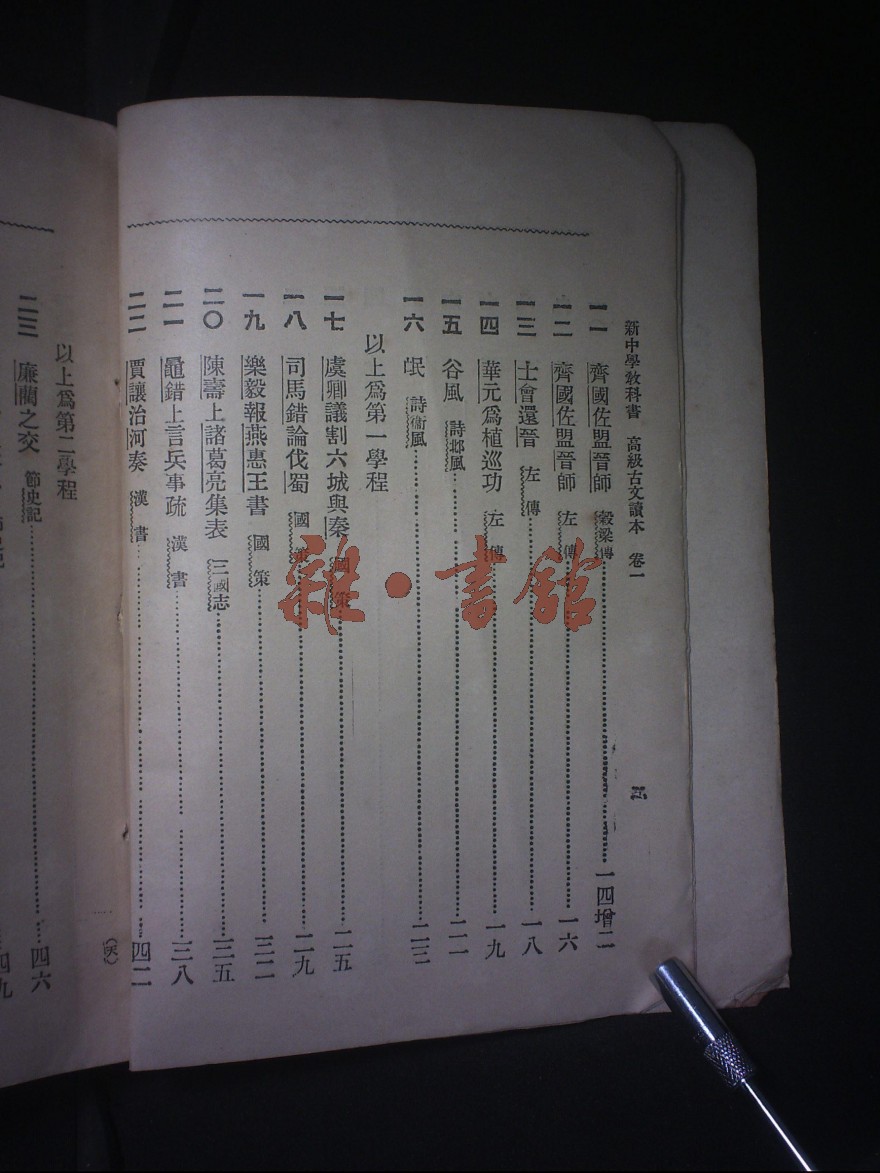 新中學教科書 高級古文讀本 卷一
一一 齊國佐盟晉師 穀梁傳 一四增二
一二 齊國佐盟晉師 左傳 一六
一三 士會還晉 左傳 一八
一四 華元爲植巡功 左傳 一九
一五 谷風 詩邶風 二一
一六 氓 詩衞風 二三
以上爲第一學程
一七 虞卿議割六城與秦 國策 二五
一八 司馬錯論伐蜀 國策 二九
一九 樂毅報燕惠王書 國策 三二
二〇 陳壽上諸葛亮集表 三國志 三五
二一 鼂錯上言兵事疏 漢書 三八
二二 賈讓治河奏 漢書 四二
以上爲第二學程
二三 廉藺之交 節史記 四六
四九
雜·書館